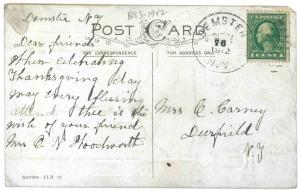 Demster N.Y.
1883-1952
DEMSTER
28
1912
N.Y.
POST CARD
FOR CORRESPONDENCE
FOR ADDRESS ONLY
Dear friend
When celebrating
Thanksgiving day
may every blessing
attend thee is the
wish of your friend
Mrs C N Woodworth
Mrs C. Carney
Deerfield
N.Y
SERIES 113